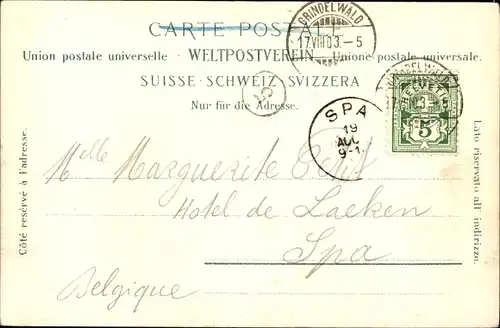 CARTE POSTALE
GRINDELWALD
17.VIII.03.–5
Union postale universelle. WELTPOSTVEREIN. Unione postale universale.
SUISSE. SCHWEIZ. SVIZZERA
Nur für die Adresse.
HELVETIA
5
SPA
19
AOU
Côté reservé à l'adresse.
Lato riservato all' indirizzo.
Melle Marguerite Petit
Hotel de Laeken
Spa
Belgique